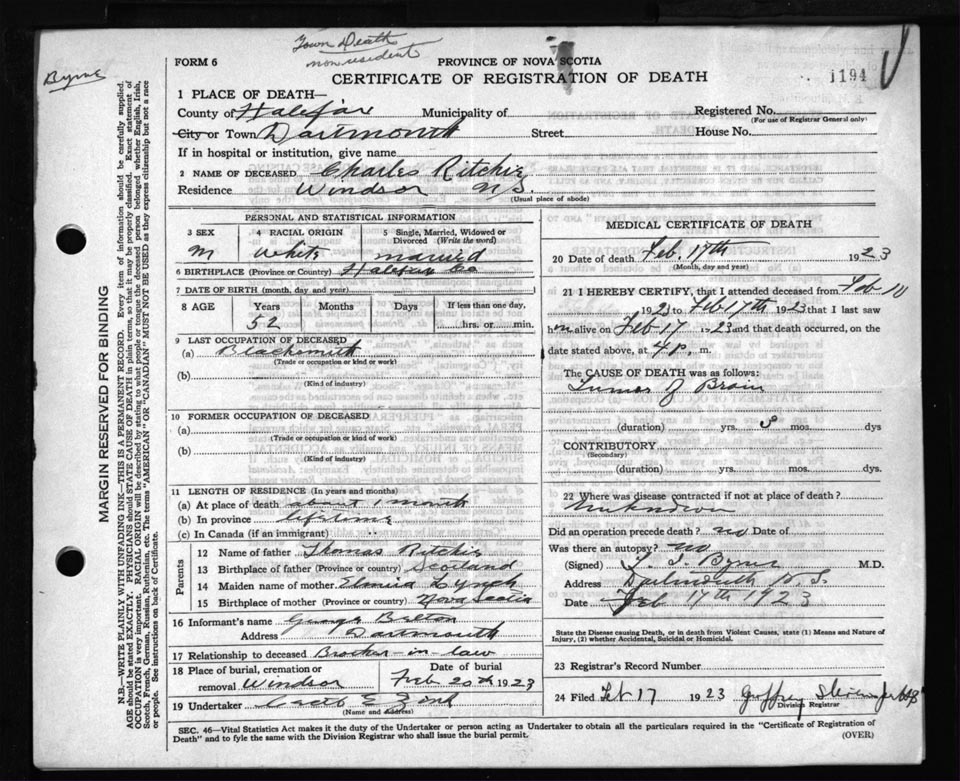 Town Death
non resident
Byrne
FORM 6
PROVINCE OF NOVA SCOTIA
CERTIFICATE OF REGISTRATION OF DEATH
1194
1 PLACE OF DEATH—
County of Halifax Municipality of Registered No.
(For use of Registrar General only)
City or Town Dartmouth Street House No.
If in hospital or institution, give name
2 NAME OF DECEASED Charles Ritchie
Residence Windsor N.S.
(Usual place of abode)
PERSONAL AND STATISTICAL INFORMATION
3 SEX 4 RACIAL ORIGIN 5 Single, Married, Widowed or Divorced (Write the word)
M White married
6 BIRTHPLACE (Province or Country) Halifax Co
7 DATE OF BIRTH (month, day and year)
8 AGE Years Months Days If less than one day,
52 hrs. or min.
9 LAST OCCUPATION OF DECEASED
(a) Blacksmith
(Trade or occupation or kind or work)
(b)
(Kind of industry)
10 FORMER OCCUPATION OF DECEASED
(a)
(Trade or occupation or kind of work)
(b)
(Kind of industry)
11 LENGTH OF RESIDENCE (In years and months)
(a) At place of death about 1 month
(b) In province lifetime
(c) In Canada (if an immigrant)
Parents
12 Name of father Thomas Ritchie
13 Birthplace of father (Province or country) Scotland
14 Maiden name of mother Elmira Lynch
15 Birthplace of mother (Province or country) Nova Scotia
16 Informant's name George
Address Dartmouth
17 Relationship to deceased Brother-in-law
18 Place of burial, cremation or Date of burial
removal Windsor Feb 20th 1923
19 Undertaker
(Name and address)
MEDICAL CERTIFICATE OF DEATH
20 Date of death Feb. 17th 1923
(Month, day and year)
21 I HEREBY CERTIFY, that I attended deceased from Feb 10
1923 to Feb 17th 1923 that I last saw
him alive on Feb 17 1923 and that death occurred, on the
date stated above, at 4 p. m.
The CAUSE OF DEATH was as follows:
Tumor of Brain
(duration) yrs. mos. dys
CONTRIBUTORY
(Secondary)
(duration) yrs. mos. dys.
22 Where was disease contracted if not at place of death?
Unknown
Did an operation precede death? no Date of
Was there an autopsy? no
(Signed) Byrne M.D.
Address Dartmouth N.S.
Date Feb 17th 1923
State the Disease causing Death, or in death from Violent Causes, state (1) Means and Nature of
Injury, (2) whether Accidental, Suicidal or Homicidal.
23 Registrar's Record Number
24 Filed Feb 17 1923 Geoffrey
Division Registrar
SEC. 46—Vital Statistics Act makes it the duty of the Undertaker or person acting as Undertaker to obtain all the particulars required in the "Certificate of Registration of
Death" and to fyle the same with the Division Registrar who shall issue the burial permit.
(OVER)
MARGIN RESERVED FOR BINDING
N.B.—WRITE PLAINLY WITH UNFADING INK—THIS IS A PERMANENT RECORD. Every item of information should be carefully supplied.
AGE should be stated EXACTLY. PHYSICIANS should STATE CAUSE OF DEATH in plain terms, so that it may be properly classified. Exact statement of
OCCUPATION is very important. RACIAL ORIGIN will be described by stating to what people or tongue the deceased person belonged whether English, Irish,
Scotch, French, German, Russian, Ruthenian, etc. The terms "AMERICAN" or "CANADIAN" MUST NOT BE USED as they express citizenship but not a race
or people. See instructions on back of Certificate.